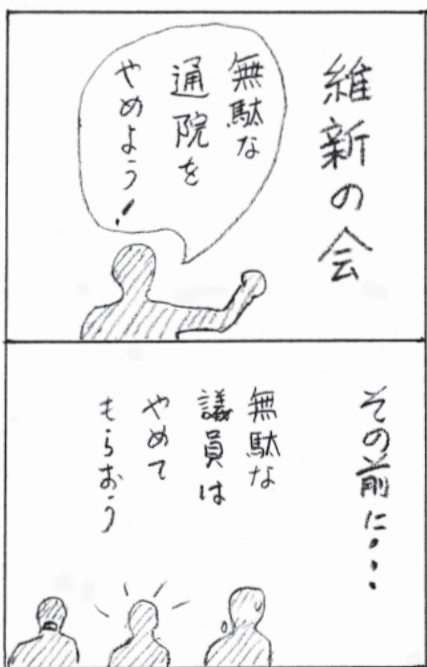 維新の会
無駄な
通院を
やめよう!
その前に・・・
無駄な
議員は
やめて
もらおう